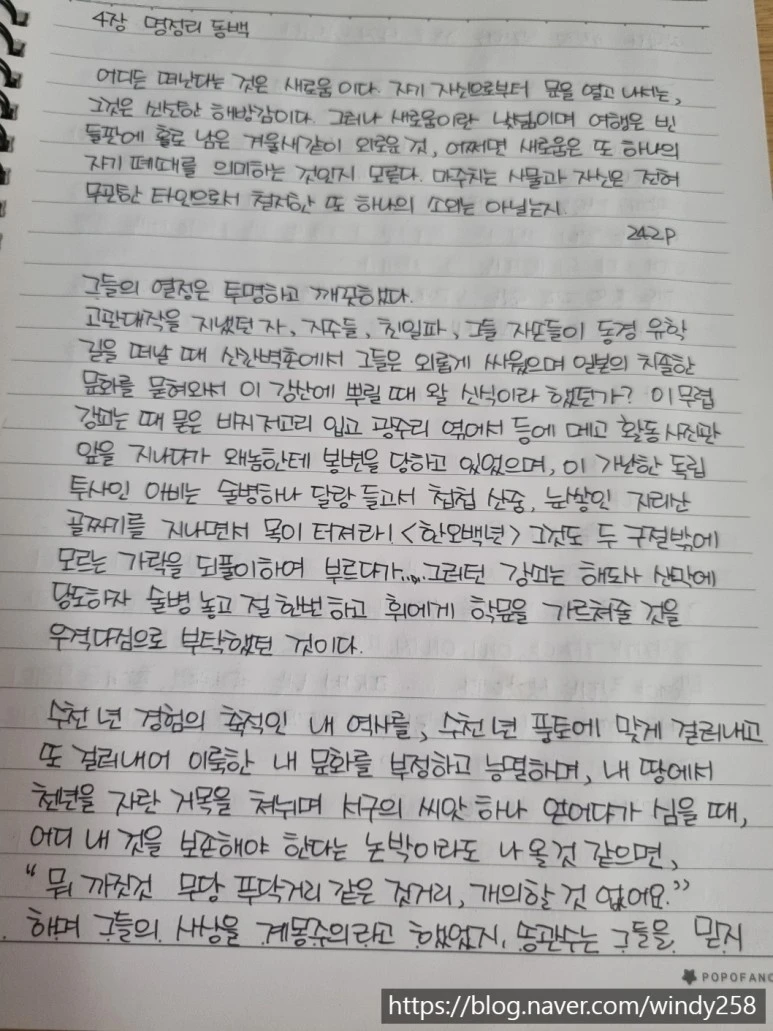 4장 명정리 동백
어디든 떠난다는 것은 새로움이다. 자기 자신으로부터 문을 열고 나서는,
그것은 신선한 해방감이다. 그러나 새로움이란 낯섦이며 여행은 빈
들판에 홀로 남은 겨울새같이 외로운 것, 어쩌면 새로움은 또 하나의
자기 폐쇄를 의미하는 것인지 모른다. 마주치는 사물과 자신은 전혀
무관한 타인으로서 철저한 또 하나의 소외는 아닐는지.
242P
그들의 열정은 투명하고 깨끗했다.
고관대작을 지냈던 자, 지주들, 친일파, 그들 자손들이 동경 유학
길을 떠날 때 산간벽촌에서 그들은 외롭게 싸웠으며 일본의 치졸한
문화를 묻혀와서 이 강산에 뿌릴 때 왈 신식이라 했던가? 이무렵
강쇠는 때 묻은 바지저고리 입고 광주리 엮어서 등에 메고 활동사진관
앞을 지나다가 왜놈한테 봉변을 당하고 있었으며, 이 가난한 독립
투사인 아비는 술병하나 달랑 들고서 첩첩 산중, 눈쌓인 지리산
골짜기를 지나면서 목이 터져라! <한오백년> 그것도 두 구절밖에
모르는 가락을 되풀이하여 부르다가.... 그러던 강쇠는 해도사 산막에
당도하자 술병 놓고 절 한번하고 휘에게 학문을 가르쳐줄 것을
우격다짐으로 부탁했던 것이다.
수천 년 경험의 축적인 내 역사를, 수천년 풍토에 맞게 걸러내고
또 걸러내어 이룩한 내 문화를 부정하고 능멸하며, 내 땅에서
천년을 자란 거목을 쳐뉘며 서구의 씨앗 하나 얻어다가 심을 때,
어디 내 것을 보존해야 한다는 논박이라도 나올것 같으면,
"뭐 까짓것 무당 푸닥거리 같은 짓거리, 개의할 것 없어요."
하며 그들의 사상을 계몽주의라고 했었지. 송관수는 그들을 믿지
POPOFANC
https://blog.naver.com/windy258